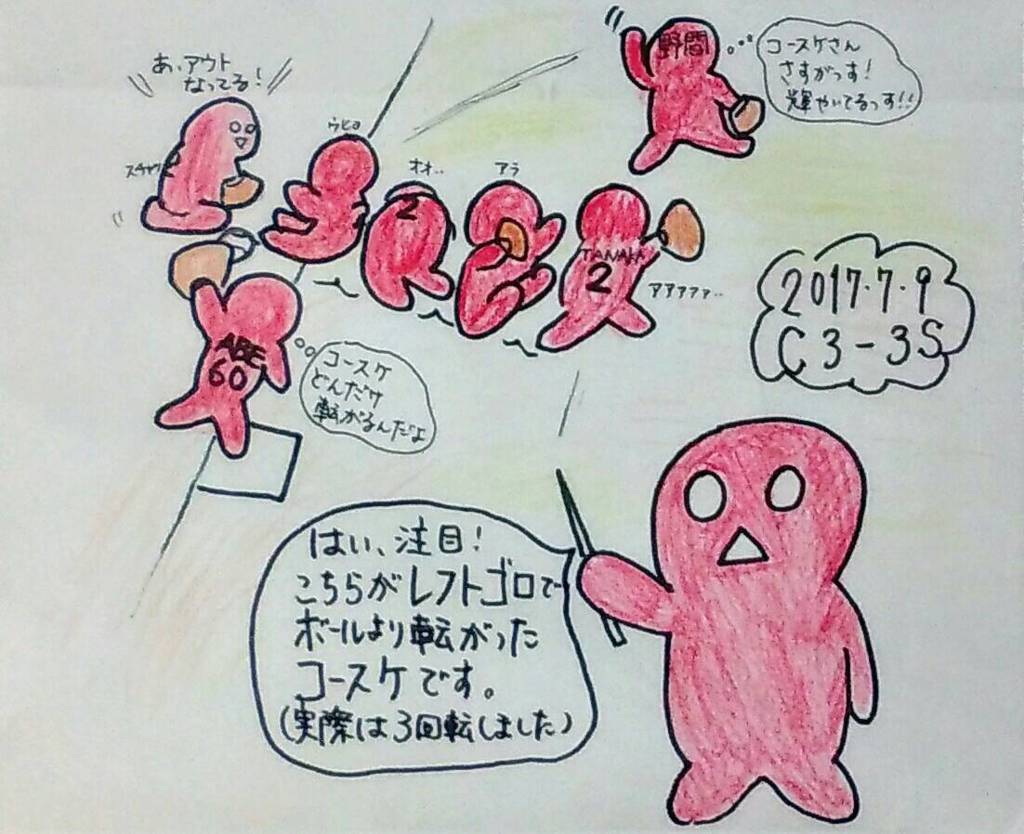 あ、アウト
なってる!
スチャッ
ウヒョ
オオ..
2
アラ
TANAKA
2
アアアアァ..
野間
コースケさん
さすがっす!
輝やいてるっす!!
ABE
60
コースケ
どんだけ
転がるんだよ
2017.7.9
C3-3S
はい、注目!
こちらがレフトゴロで
ボールより転がった
コースケです。
(実際は3回転しました)